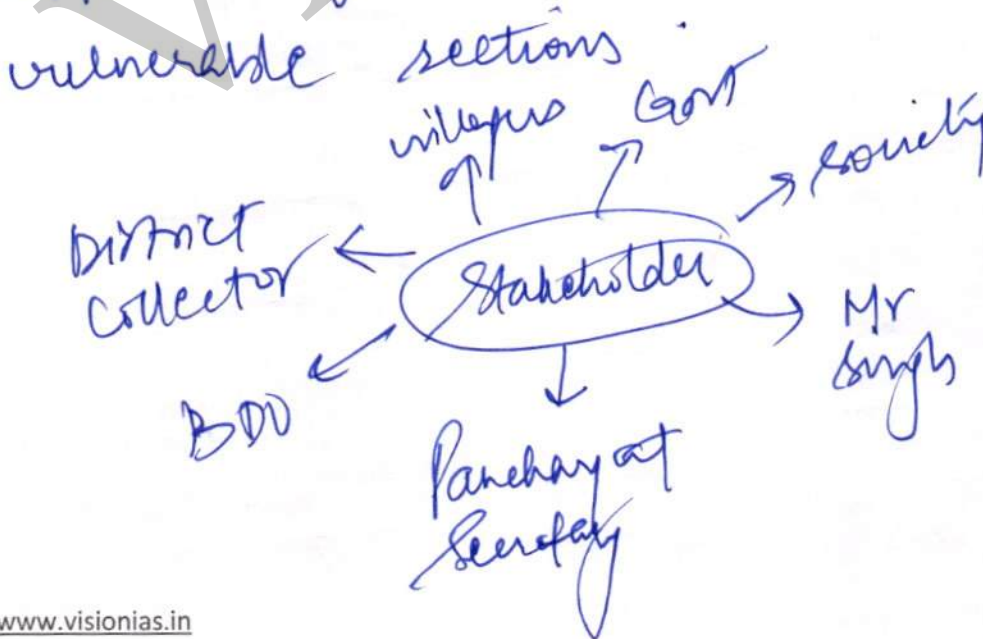 vulnerable sections
villagers
Govt
society
District
Collector
Stakeholder
Mr
Singh
BDO
Panchayat
Secretary
www.visionias.in